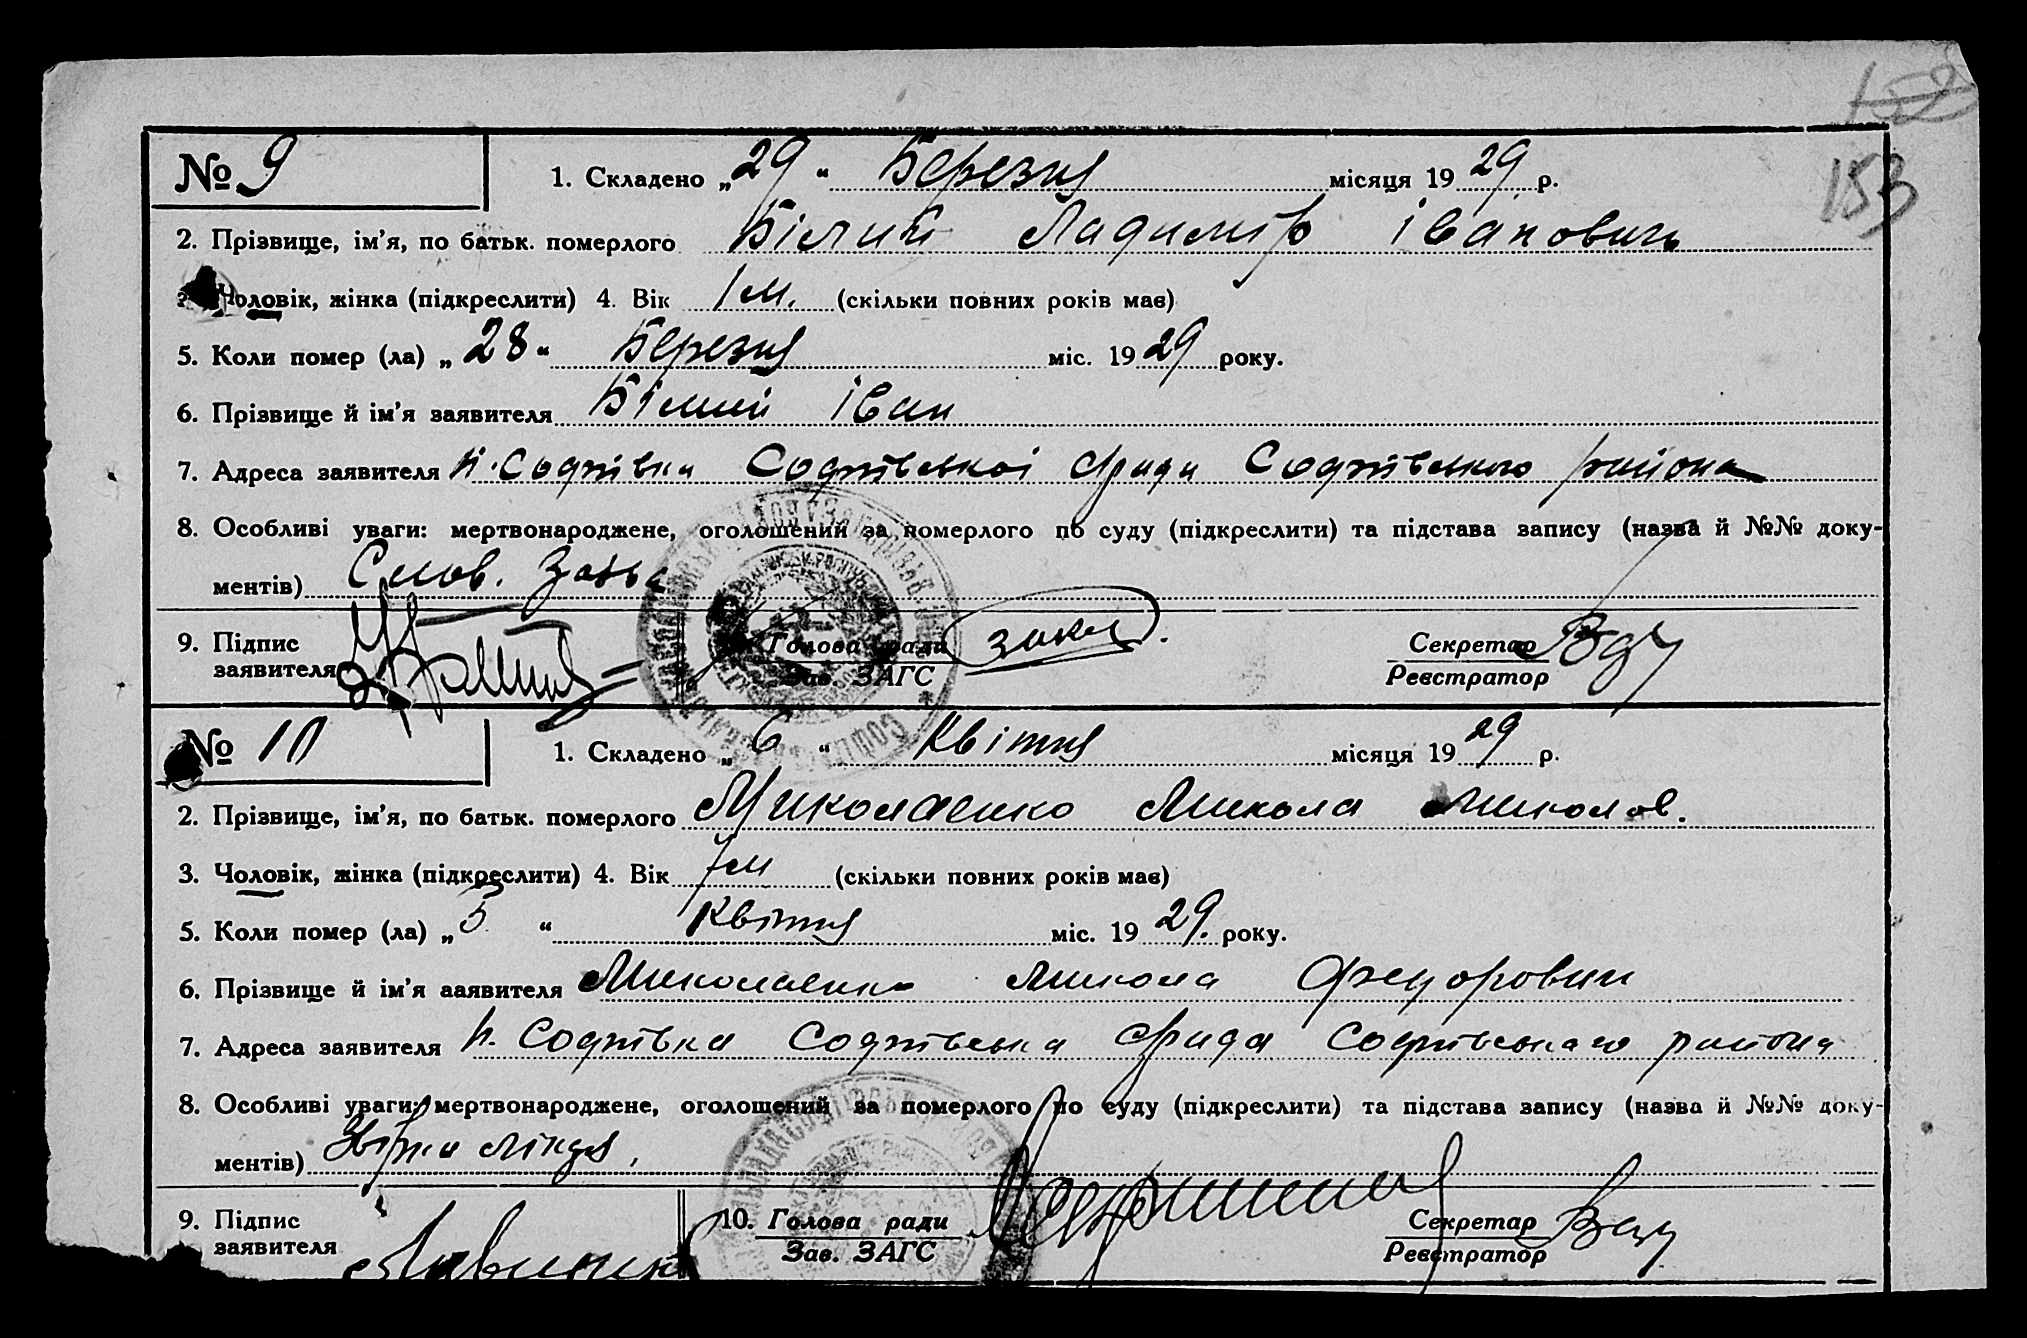 152
153
№ 9
1. Складено „29“ Березня місяця 1929 р.
2. Прізвище, ім’я, по батьк. померлого Білий Ладимір Іванович
Чоловік, жінка (підкреслити) 4. Вік 1 м. (скільки повних років має)
5. Коли помер (ла) „28“ Березня міс. 1929 року.
6. Прізвище й ім’я заявителя Білий Іван
7. Адреса заявителя Софіївка Софіївської с/ради Софіївського района
8. Особливі уваги: мертвонароджене, оголошений за померлого по суду (підкреслити) та підстава запису (назва й №№ доку-
ментів) Слов. Заява
9. Підпис Голова ради Секретар
заявителя Зав. ЗАГС Реєстратор
№ 10
1. Складено „6“ Квітня місяця 1929 р.
2. Прізвище, ім’я, по батьк. померлого Миколаенко Микола Миколов.
3. Чоловік, жінка (підкреслити) 4. Вік 7 м (скільки повних років має)
5. Коли помер (ла) „5“ Квітня міс. 1929. року.
6. Прізвище й ім’я заявителя Миколаенко Микола Федорович
7. Адреса заявителя Софіївка Софіївська с/рада Софіївського района
8. Особливі уваги: мертвонароджене, оголошений за померлого по суду (підкреслити) та підстава запису (назва й №№ доку-
ментів)
9. Підпис 10. Голова ради Секретар
заявителя Зав. ЗАГС Реєстратор